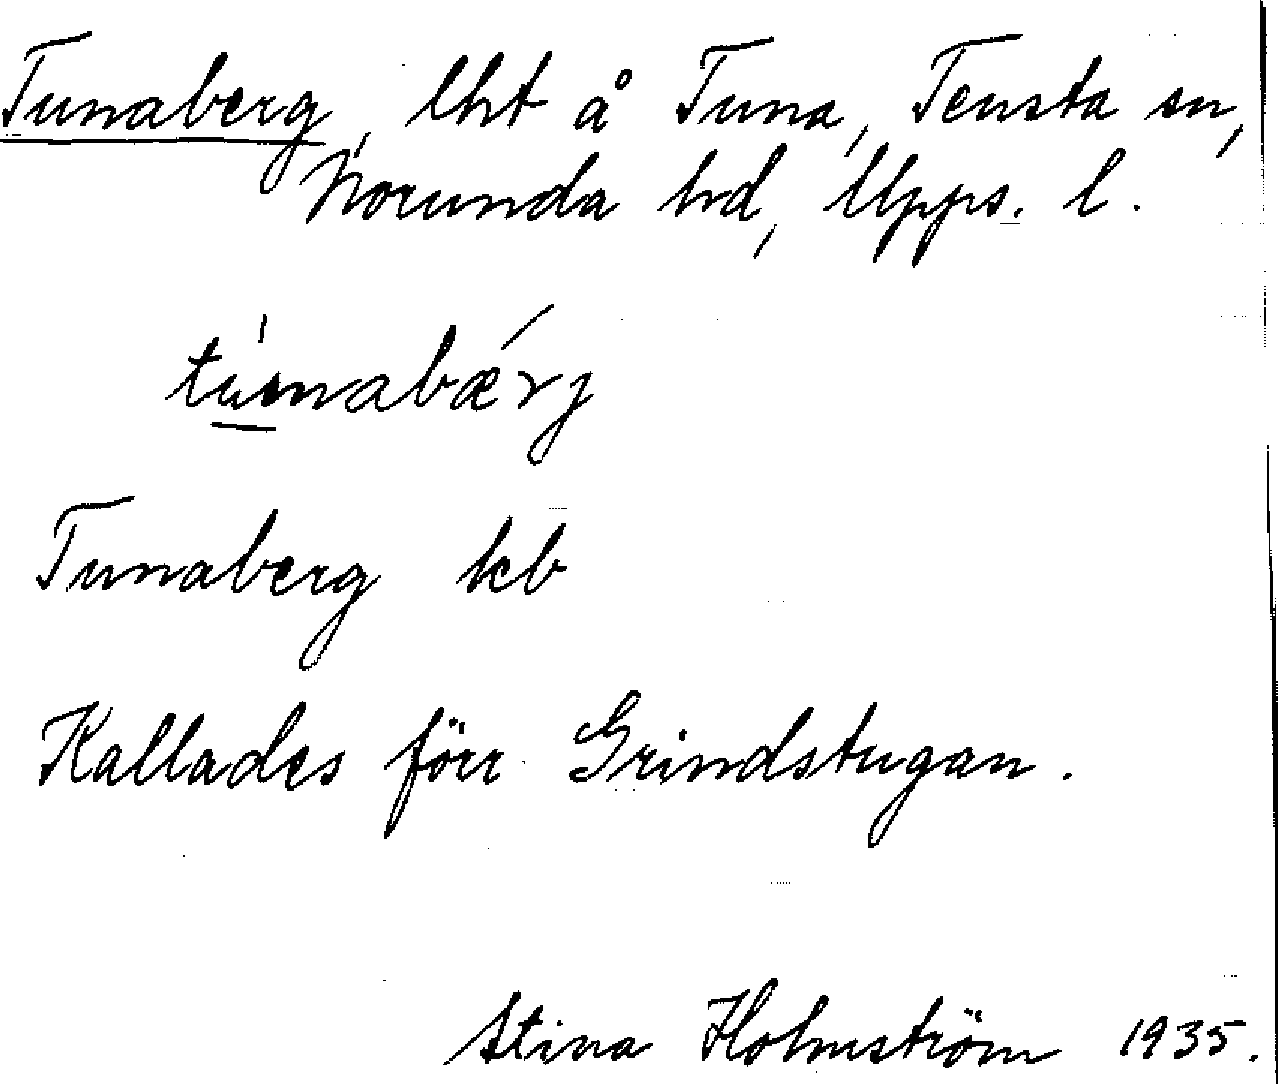 Tunaberg, lht å Tuna, Tensta sn,
Norunda hd, Upps. l.
tu̲nabærj
Tunaberg kb
Kallades förr Grindstugan.
Stina Holmström 1935.